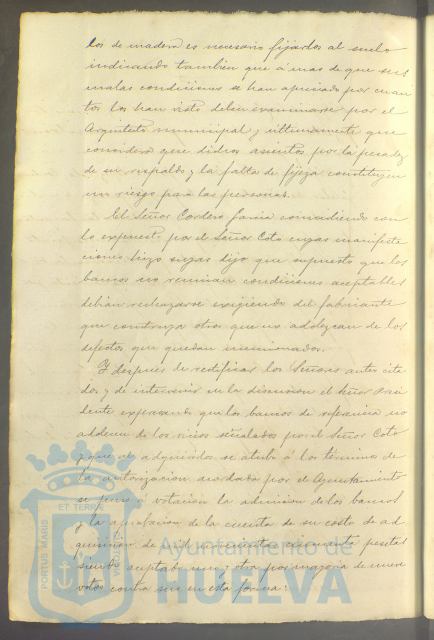 los de madera es necesario fijarlos al suelo
indicando tambien que á mas de que sus
malas condiciones se han apreciado por cuan
tos los han visto deben examinarse por el
Arquitecto municipal y ultimamente que
considera que dichos asientos por la pesadez
de su respaldo y la falta de fijeza constituyen
un riesgo para las personas.
El Señor Cordero Garcia coincidiendo con
lo expuesto por el Señor Coto cuyas manifesta
ciones hizo suyas dijo que supuesto que los
bancos no reunian condiciones aceptables
debian rechazarse exigiendo del fabricante
que construya otros que no adolezcan de los
defectos que quedan mencionados.
Y despues de rectificar los Señores antes cita
dos y de intervenir en la discusion el Señor Presi
dente expresando que los bancos de referencia no
adolecen de los vicios señalados por el Señor Coto
y que al adquirirlos se atubo á los términos de
la autorizacion acordada por el Ayuntamiento
se puso á votacion la admision de los bancos
y la aprobacion de la cuenta de su costo de ad
quisicion de mil cincuenta pesetas
siendo aceptada una y otra por mayoria de nueve
votos contra seis en esta forma:
PORTUS MARIS
ET TERRAE
CUSTODIA
Ayuntamiento de
HUELVA